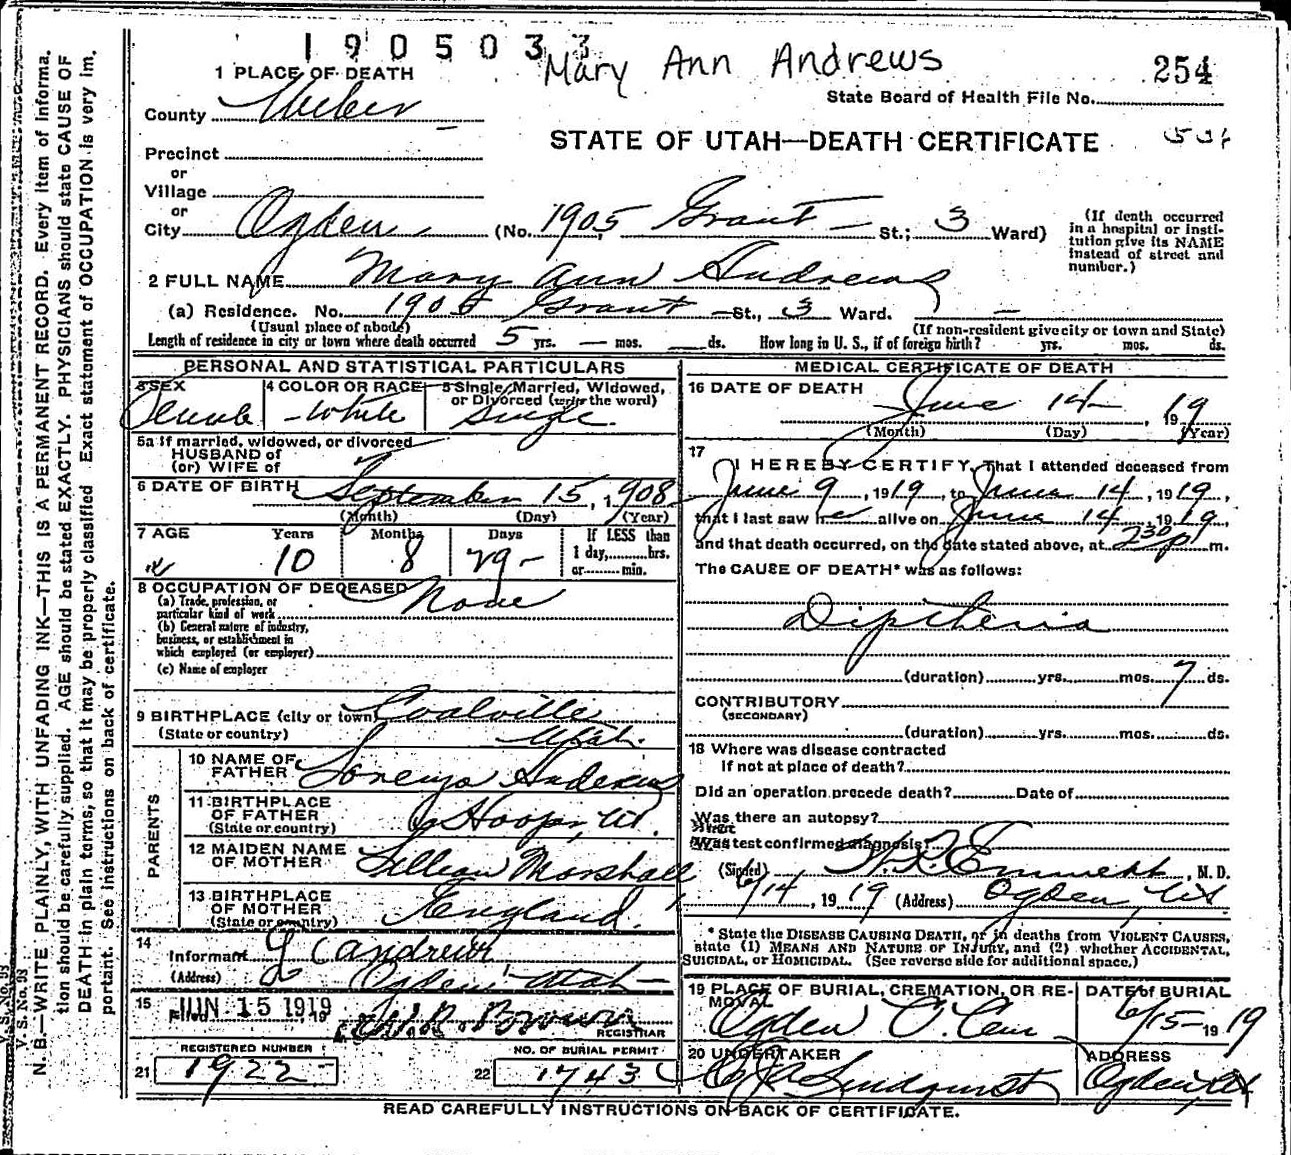 1905033
Mary Ann Andrews
254
1 PLACE OF DEATH
State Board of Health File No.
County Weber
STATE OF UTAH—DEATH CERTIFICATE
Precinct
or
Village
or
City Ogden (No. 1905 Grant St.; 3 Ward)
(If death occurred in a hospital or insti-
tution give its NAME
instead of street and
number.)
2 FULL NAME Mary Ann Andrews
(a) Residence. No. 1905 Grant St., 3 Ward.
(Usual place of abode) (If non-resident give city or town and State)
Length of residence in city or town where death occurred 5 yrs. — mos. ds. How long in U. S., if of foreign birth? yrs. mos. ds.
PERSONAL AND STATISTICAL PARTICULARS
3 SEX 4 COLOR OR RACE 5 Single, Married, Widowed,
or Divorced (write the word)
Female White Single
5a If married, widowed, or divorced
HUSBAND of
(or) WIFE of
6 DATE OF BIRTH September 15, 1908
(Month) (Day) (Year)
7 AGE Years Months Days If LESS than
1 day, hrs.
or min.
10 8 29
8 OCCUPATION OF DECEASED None
(a) Trade, profession, or
particular kind of work
(b) General nature of industry,
business, or establishment in
which employed (or employer)
(c) Name of employer
9 BIRTHPLACE (city or town) Coalville
(State or country) Utah.
PARENTS
10 NAME OF
FATHER Lorenzo Andrews
11 BIRTHPLACE
OF FATHER Hooper, Ut.
(State or country)
12 MAIDEN NAME
OF MOTHER Lillian Marshall
13 BIRTHPLACE
OF MOTHER England.
(State or country)
14
Informant L Andrews
(Address) Ogden Utah
15
Filed JUN 15 1919, 19 Brown
REGISTRAR
REGISTERED NUMBER NO. OF BURIAL PERMIT
21 1922 22 1743
MEDICAL CERTIFICATE OF DEATH
16 DATE OF DEATH
June 14, 1919
(Month) (Day) (Year)
17
I HEREBY CERTIFY, That I attended deceased from
June 9, 1919, to June 14, 1919,
that I last saw her alive on June 14, 1919,
and that death occurred, on the date stated above, at 230 p m.
The CAUSE OF DEATH* was as follows:
Diptheria
(duration) yrs. mos. 7 ds.
CONTRIBUTORY
(SECONDARY)
(duration) yrs. mos. ds.
18 Where was disease contracted
If not at place of death?
Did an operation precede death? Date of
Was there an autopsy?
What test confirmed diagnosis?
(Signed) Emmett, M. D.
6/14, 1919 (Address) Ogden, Ut
* State the DISEASE CAUSING DEATH, or in deaths from VIOLENT CAUSES,
state (1) MEANS AND NATURE OF INJURY, and (2) whether ACCIDENTAL,
SUICIDAL, or HOMICIDAL. (See reverse side for additional space.)
19 PLACE OF BURIAL, CREMATION, OR RE-
MOVAL
Ogden C. Cem
DATE of BURIAL
6/15-1919
20 UNDERTAKER
Lindquist
ADDRESS
Ogden, Ut
READ CAREFULLY INSTRUCTIONS ON BACK OF CERTIFICATE.
V. S. No. 98
N. B.—WRITE PLAINLY, WITH UNFADING INK—THIS IS A PERMANENT RECORD. Every item of informa-
tion should be carefully supplied. AGE should be stated EXACTLY. PHYSICIANS should state CAUSE OF
DEATH in plain terms, so that it may be properly classified. Exact statement of OCCUPATION is very im-
portant. See instructions on back of certificate.